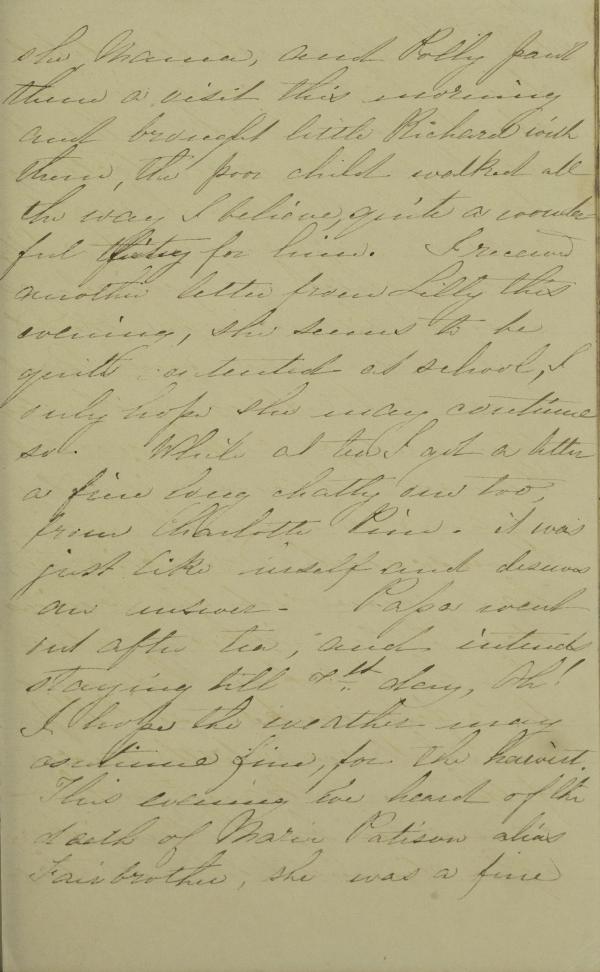 she, Mama, and Polly paid
them a visit this morning
and brought little Richard with
them, the poor child walked all
the way I believe, quite a wonder
ful for him. I received
another letter from Lilly this
evening, she seems to be
quite contented at school, I
only hope she may continue
so. While at tea I got a letter
a fine long chatty one too,
from Charlotte Pim. it was
just like herself and deserves
an answer - Papa went
out after tea, and intends
staying till day, Oh!
I hope the weather may
continue fine, for the harvest.
This evening we heard of the
death of Maria Patison alias
Fairbrother, she was a fine